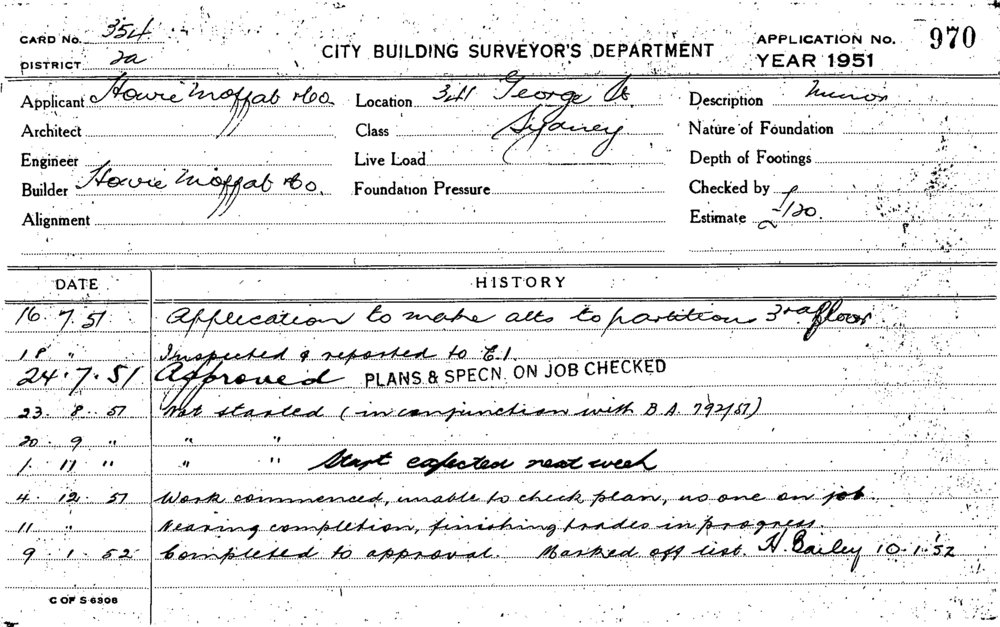 CARD No. 354
DISTRICT 2a
CITY BUILDING SURVEYOR'S DEPARTMENT
APPLICATION No. 970
YEAR 1951
Applicant Howie Moffab & Co.
Location 341 George St
Description Minor
Architect
Class Sydney
Nature of Foundation
Engineer
Live Load
Depth of Footings
Builder Howie Moffab & Co.
Foundation Pressure
Checked by
Alignment
Estimate £120.
DATE HISTORY
16. 7. 51 Application to make alts to partitions 3rd floor
18 " Inspected & reported to E.1.
24.7.51 Approved PLANS & SPECN. ON JOB CHECKED
23. 8. 51 Not started (in conjunction with B.A. 792/51)
20. 9 " " "
1. 11 " " " Start expected next week
4. 12. 51 Work commenced, unable to check plan, no one on job.
11 " Nearing completion, finishing trades in progress
9. 1. 52 Completed to approval. Marked off list. H. Bailey 10.1.52
C OF S 6306